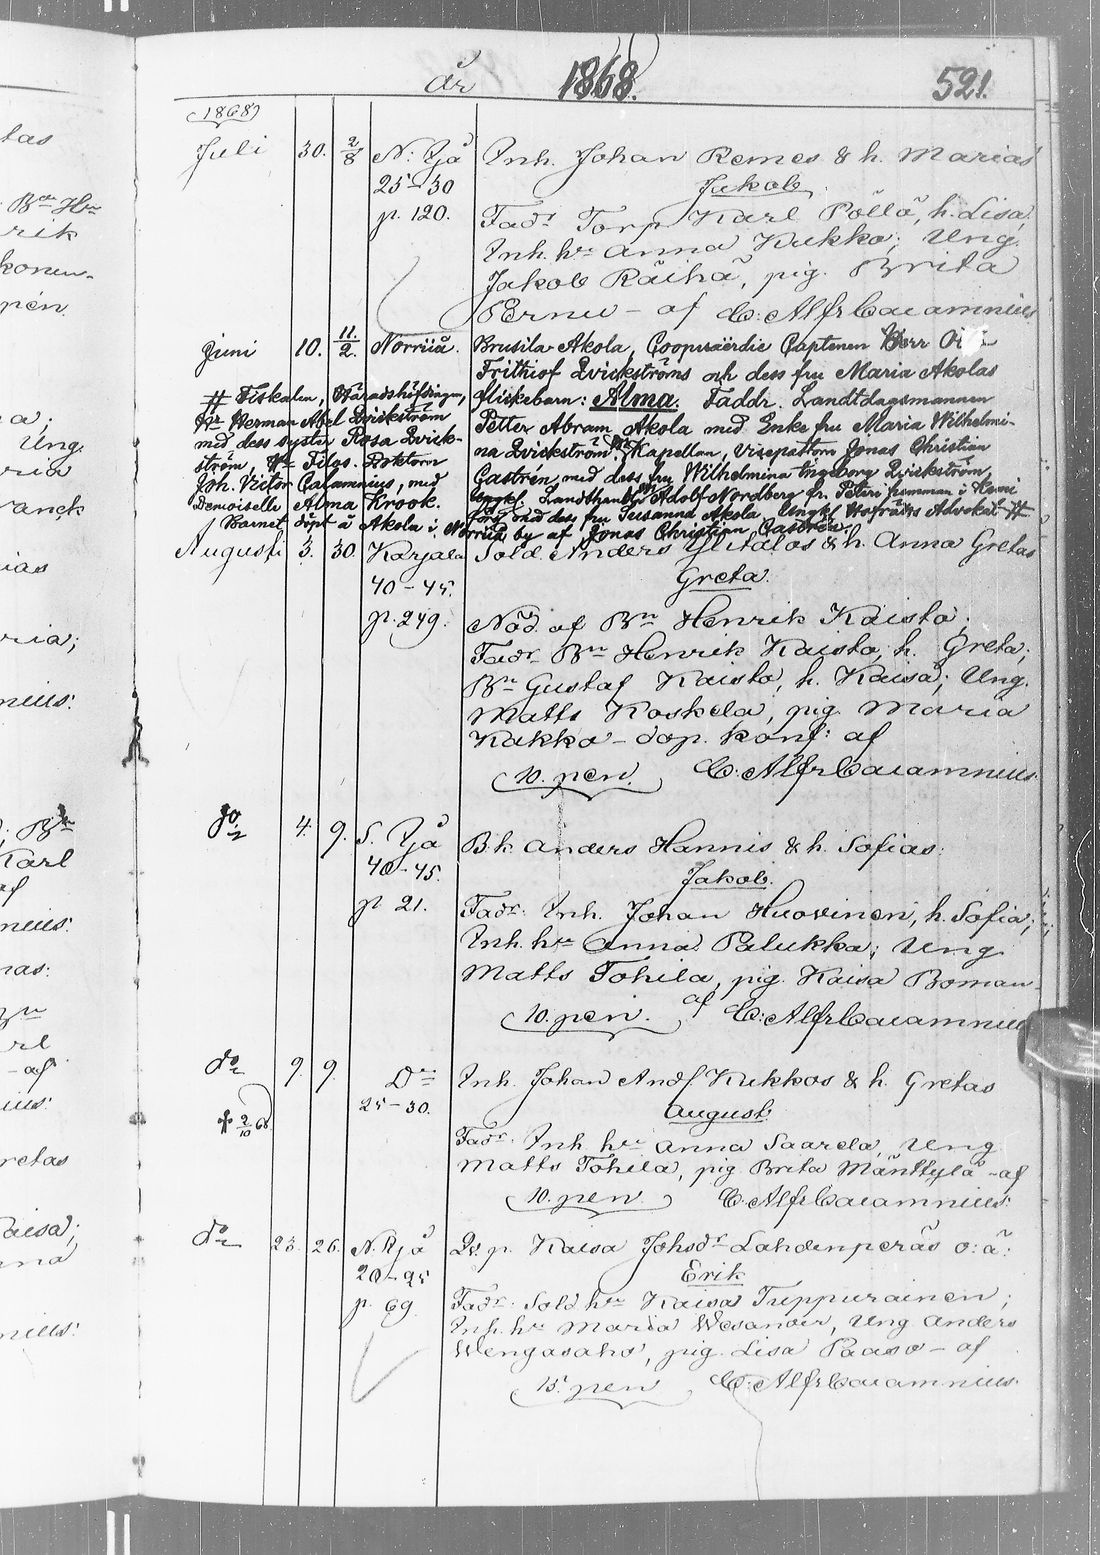 år 1868. 521.
(1868)
Juli 30. 2/8 N: Ijå Inh. Johan Remes & h. Marias
25-30 Jakob.
p. 120. Fadr Torp Karl Pöllä, h. Lisa,
Inh. hru Anna Kukko; Ung.
Jakob Räihä, pig. Brita
Pernu - af C. Alfr Calamnius
Juni 10. 11./2. Norriiå. Brusila Akola, Coopvaerdie Captenen Herr
Frithiof Qvickströms och dess fru Maria Akolas
flickebarn: Alma. Faddr. Landtdagsmannen
Petter Abram Akola med Enke fru Maria Wilhelmi-
na Qvickström. Kapellan, Vicepastorn Jonas Christian
Castrén med dess fru Wilhelmina Ingeborg Qvickström,
Landthandl. Adolf Nordberg fr. Peteri hemman i Kemi
med dess fru Susanna Akola Ungkl Hofrätts Advokat #
# Fiskalen, Häradshöfdingen,
Hr Herman Abel Qvickström
med dess syster Rosa Qvick-
ström, Hr Filos. Doktorn
Joh. Victor Calamnius, med
Demoiselle Alma Krook.
Barnet döpt å Akola i Norriiå by af Jonas Christian Castrén
Augusti 3. 30. Karjala Sold Anders Ylitalos & h. Anna Gretas
40-45. Greta.
p. 249. Nöd. af Bn Henrik Kaisto;
Fadr Bn Henrik Kaisto, h. Greta;
Bn Gustaf Kaisto, h. Kaisa; Ung.
Matts Koskela, pig. Maria
Kukko - dop. konf: af
10. pen. C. Alfr Calamnius
do 4. 9. S. Ijå B.k. Anders Hannis & h. Sofias:
40-45. Jakob.
p 21. Fadr. Inh. Johan Huovinen, h. Sofia;
Inh. hru Anna Palukka; Ung
Matts Tohila, pig. Kaisa Boman-
10. pen. af C: Alfr Calamnius
do 9. 9. Do Inh. Johan Andf Kukkos & h. Gretas
25-30. August.
† 2/10 68 Fadr. Inh hru Anna Saarela, Ung
Matts Tohila, pig Brita Mänttylä -af
10. pen C. Alfr Calamnius:
do 23. 26. N. Ijå Qv. p. Kaisa Johsdr Lahdenperäs o: ä:
20-25 Erik
p. 69. Fadr. Sold hru Kaisa Tuppurainen;
Inh. hru Maria Wesander, Ung Anders
Wengasaho, pig. Lisa Paaso - af
15. pen C. Alfr Calamnius.